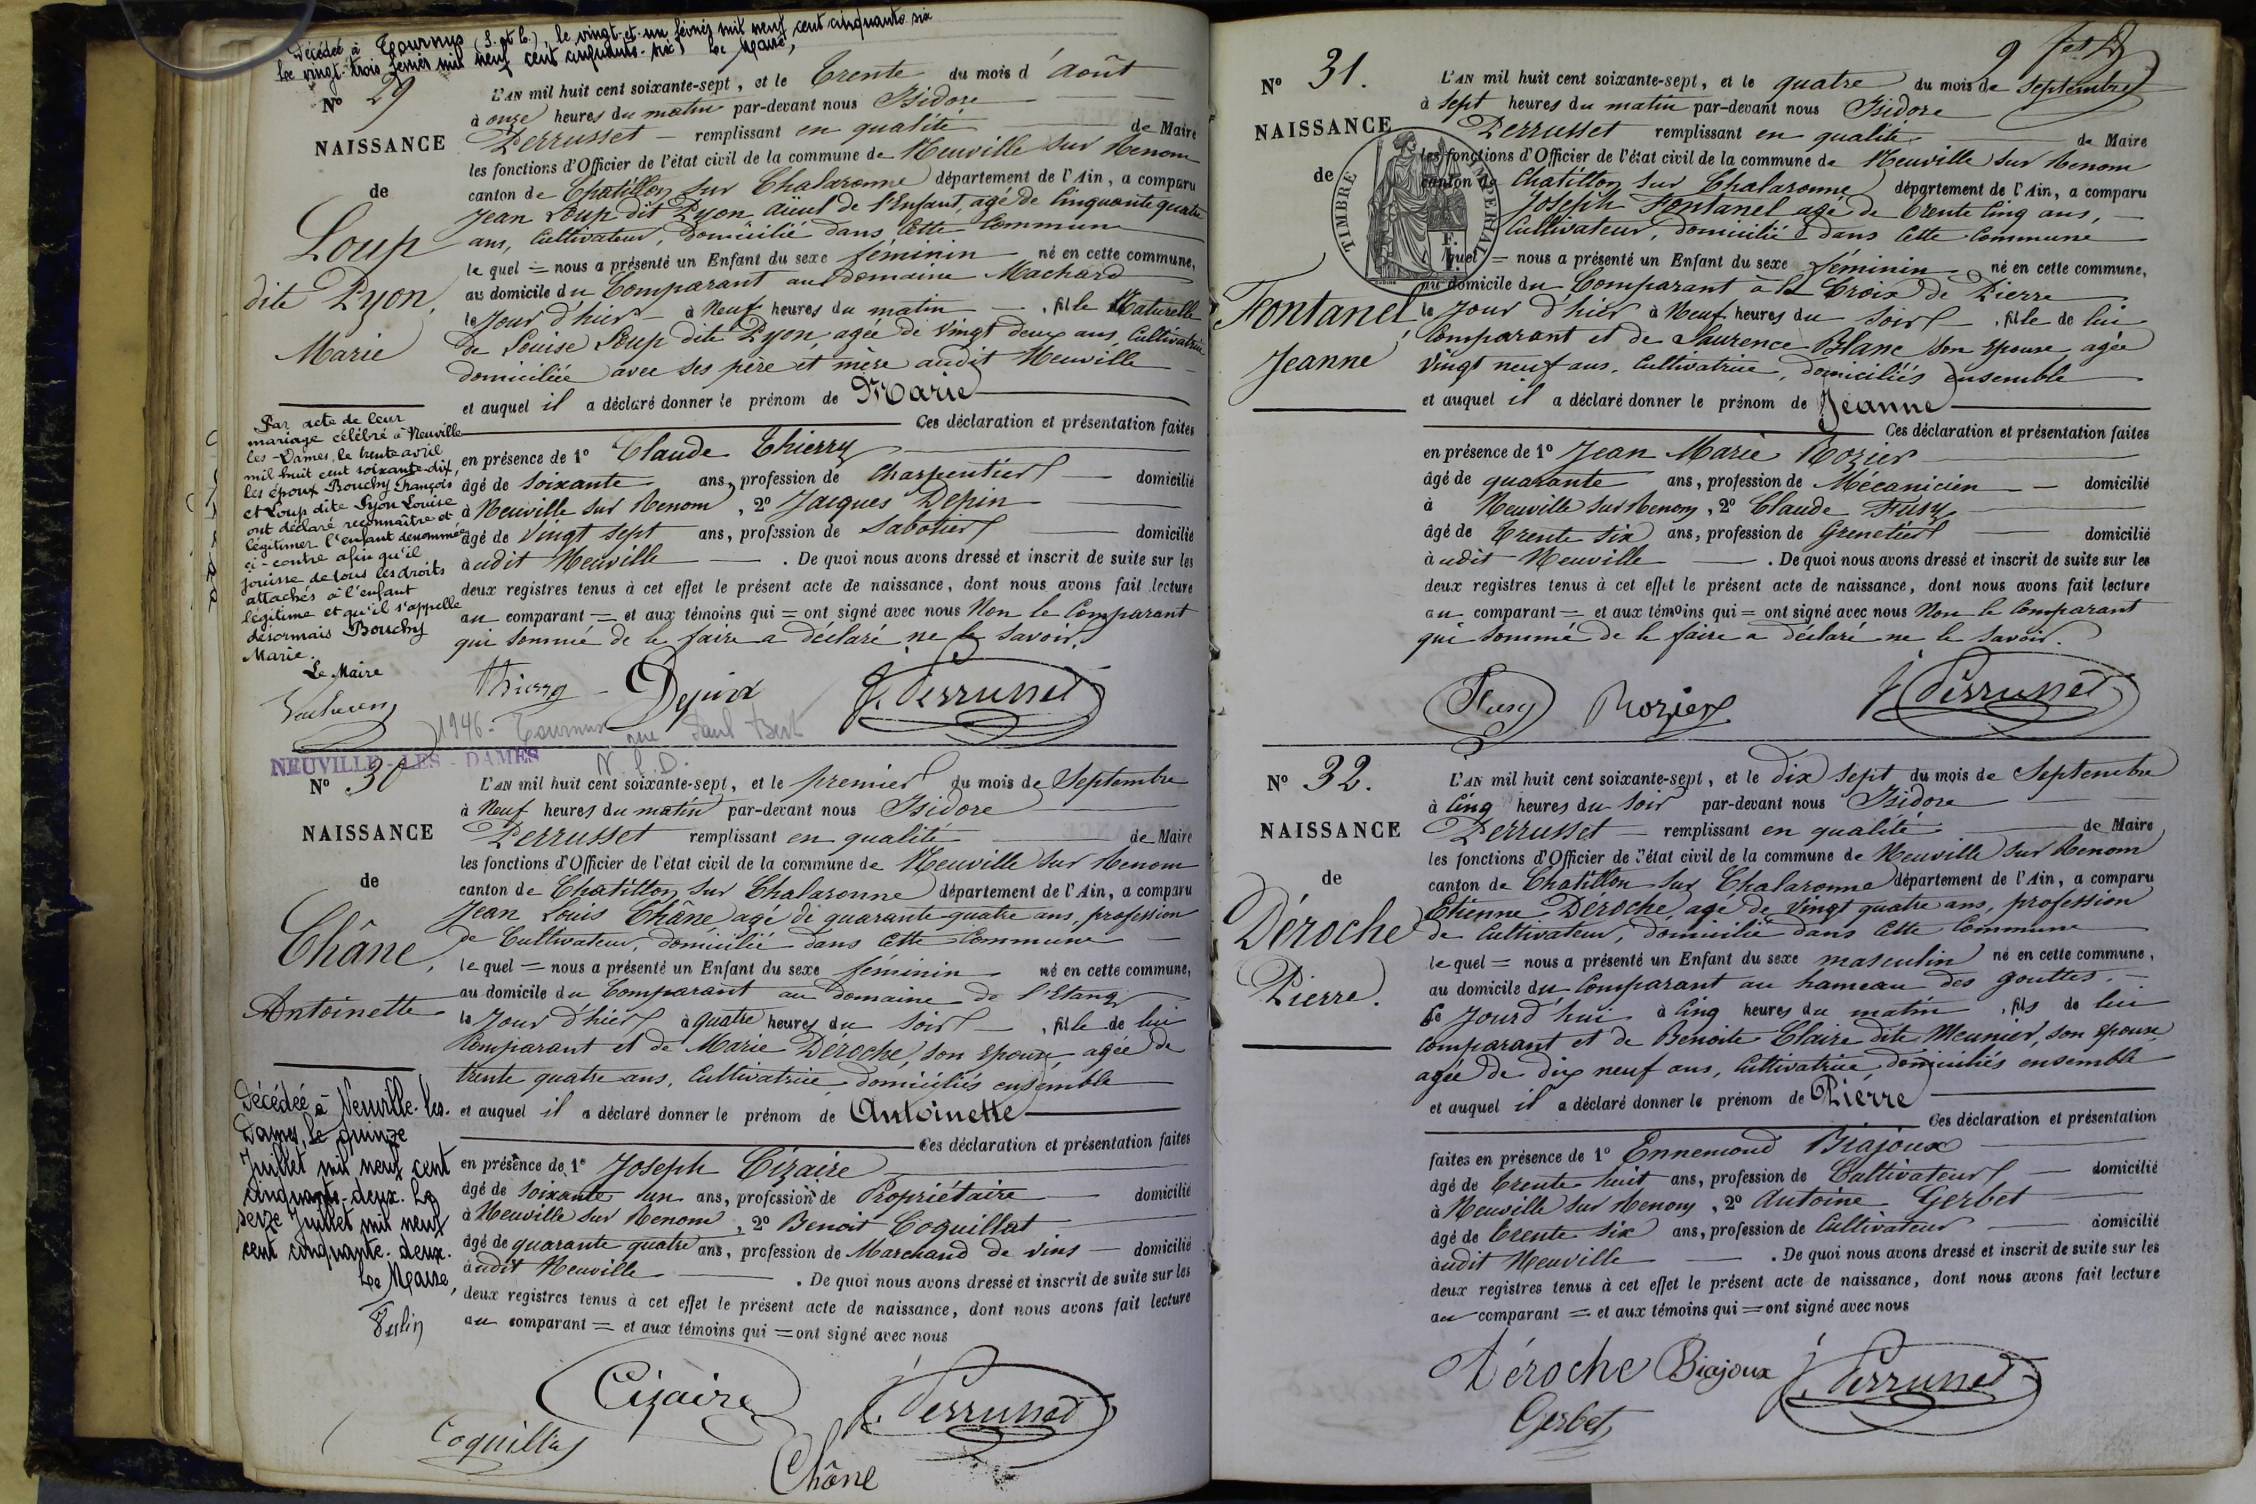 Décédée à Tournus (S. et L.), le vingt-et-un février mil neuf cent cinquante six
Le vingt-trois février mil neuf cent cinquante-six, Le Maire,
N° 29
NAISSANCE
de
Loup
dite Pyon,
Marie
L'AN mil huit cent soixante-sept, et le trente du mois d'Août
à onze heures du matin par-devant nous Isidore
Perrusset remplissant en qualité de Maire
les fonctions d'Officier de l'état civil de la commune de Neuville sur Renom
canton de Chatillon sur Chalaronne département de l'Ain, a comparu
Jean Loup dit Pyon aïeul de l'Enfant, agé de Cinquante quatre
ans, Cultivateur, domicilié dans Cette Commune
le quel = nous a présenté un Enfant du sexe féminin né en cette commune,
au domicile du Comparant au domaine Machard
le Jour d'hier à Neuf heures du matin, fille Naturelle
de Louise Loup dite Pyon, agée de Vingt deux ans, Cultivatrice
domiciliée avec ses père et mère audit Neuville
et auquel il a déclaré donner le prénom de Marie
Ces déclaration et présentation faites
en présence de 1° Claude Thierry
âgé de soixante ans, profession de Charpentier domicilié
à Neuville sur Renom, 2° Jacques Depin
âgé de Vingt sept ans, profession de Sabotier domicilié
audit Neuville. De quoi nous avons dressé et inscrit de suite sur les
deux registres tenus à cet effet le présent acte de naissance, dont nous avons fait lecture
au comparant = et aux témoins qui = ont signé avec nous Non le Comparant
qui sommé de le faire a déclaré ne le savoir.
Par acte de leur
mariage célébré à Neuville
les-Dames, le trente avril
mil huit cent soixante-dix,
les époux Bouchy François
et Loup dite Pyon Louise
ont déclaré reconnaître et
légitimer l'enfant dénommé
ci-contre afin qu'il
jouisse de tous les droits
attachés à l'enfant
légitime et qu'il s'appelle
désormais Bouchy
Marie.
Le Maire
Thierry Depin J. Perrusset
1946 - Tournus rue Paul Bert
N. L. D.
NEUVILLE-LES-DAMES
N° 30
NAISSANCE
de
Châne,
Antoinette
L'AN mil huit cent soixante-sept, et le premier du mois de Septembre
à Neuf heures du matin par-devant nous Isidore
Perrusset remplissant en qualité de Maire
les fonctions d'Officier de l'état civil de la commune de Neuville sur Renom
canton de Chatillon sur Chalaronne département de l'Ain, a comparu
Jean Louis Châne agé de quarante quatre ans, profession
de Cultivateur, domicilié dans Cette Commune
le quel = nous a présenté un Enfant du sexe féminin né en cette commune,
au domicile du Comparant au domaine de l'Etang
le Jour d'hier à quatre heures du soir, fille de lui
Comparant et de Marie Déroche, son Epouse agée de
trente quatre ans, Cultivatrice domiciliés ensemble
et auquel il a déclaré donner le prénom de Antoinette
Ces déclaration et présentation faites
en présence de 1° Joseph Cizaire
âgé de Soixante un ans, profession de Propriétaire domicilié
à Neuville sur Renom, 2° Benoit Coquillat
âgé de quarante quatre ans, profession de Marchand de vins domicilié
audit Neuville. De quoi nous avons dressé et inscrit de suite sur les
deux registres tenus à cet effet le présent acte de naissance, dont nous avons fait lecture
au comparant = et aux témoins qui = ont signé avec nous
Décédée à Neuville-les-
Dames, le quinze
Juillet mil neuf cent
cinquante-deux. Le
seize Juillet mil neuf
cent cinquante-deux.
Le Maire,
Cizaire J. Perrusset
Coquillat
Châne
N° 31.
NAISSANCE
de
Fontanel,
Jeanne
TIMBRE IMPERIAL
9
L'AN mil huit cent soixante-sept, et le quatre du mois de Septembre
à sept heures du matin par-devant nous Isidore
Perrusset remplissant en qualité de Maire
les fonctions d'Officier de l'état civil de la commune de Neuville sur Renom
canton de Chatillon sur Chalaronne département de l'Ain, a comparu
Joseph Fontanel agé de trente Cinq ans,
Cultivateur, domicilié dans Cette Commune
lequel = nous a présenté un Enfant du sexe féminin né en cette commune,
au domicile du Comparant à la Croix de Pierre
le Jour d'hier à Neuf heures du soir, fille de lui
Comparant et de Laurence Blanc son Epouse agée
Vingt neuf ans, Cultivatrice, domiciliés ensemble
et auquel il a déclaré donner le prénom de Jeanne
Ces déclaration et présentation faites
en présence de 1° Jean Marie Rozier
âgé de quarante ans, profession de Mécanicien domicilié
à Neuville sur Renom, 2° Claude Fusy
âgé de trente six ans, profession de Grenetier domicilié
audit Neuville. De quoi nous avons dressé et inscrit de suite sur les
deux registres tenus à cet effet le présent acte de naissance, dont nous avons fait lecture
au comparant = et aux témoins qui = ont signé avec nous Non le Comparant
qui sommé de le faire a déclaré ne le savoir.
Fusy Rozier J. Perrusset
N° 32.
NAISSANCE
de
Déroche
Pierre.
L'AN mil huit cent soixante-sept, et le dix sept du mois de Septembre
à Cinq heures du soir par-devant nous Isidore
Perrusset remplissant en qualité de Maire
les fonctions d'Officier de l'état civil de la commune de Neuville sur Renom
canton de Chatillon sur Chalaronne département de l'Ain, a comparu
Etienne Déroche agé de Vingt quatre ans, profession
de Cultivateur, domicilié dans Cette Commune
lequel = nous a présenté un Enfant du sexe masculin né en cette commune,
au domicile du Comparant au hameau des gouttes,
ce Jourd'hui à Cinq heures du matin, fils de lui
Comparant et de Benoite Claire dite Meunier, son Epouse,
agée de dix neuf ans, Cultivatrice domiciliés ensemble
et auquel il a déclaré donner le prénom de Pierre
Ces déclaration et présentation
faites en présence de 1° Ennemond Biajoux
âgé de trente huit ans, profession de Cultivateur domicilié
à Neuville sur Renom, 2° Antoine Gerbet
âgé de trente six ans, profession de Cultivateur domicilié
audit Neuville. De quoi nous avons dressé et inscrit de suite sur les
deux registres tenus à cet effet le présent acte de naissance, dont nous avons fait lecture
au comparant = et aux témoins qui = ont signé avec nous
Déroche Biajoux J. Perrusset
Gerbet